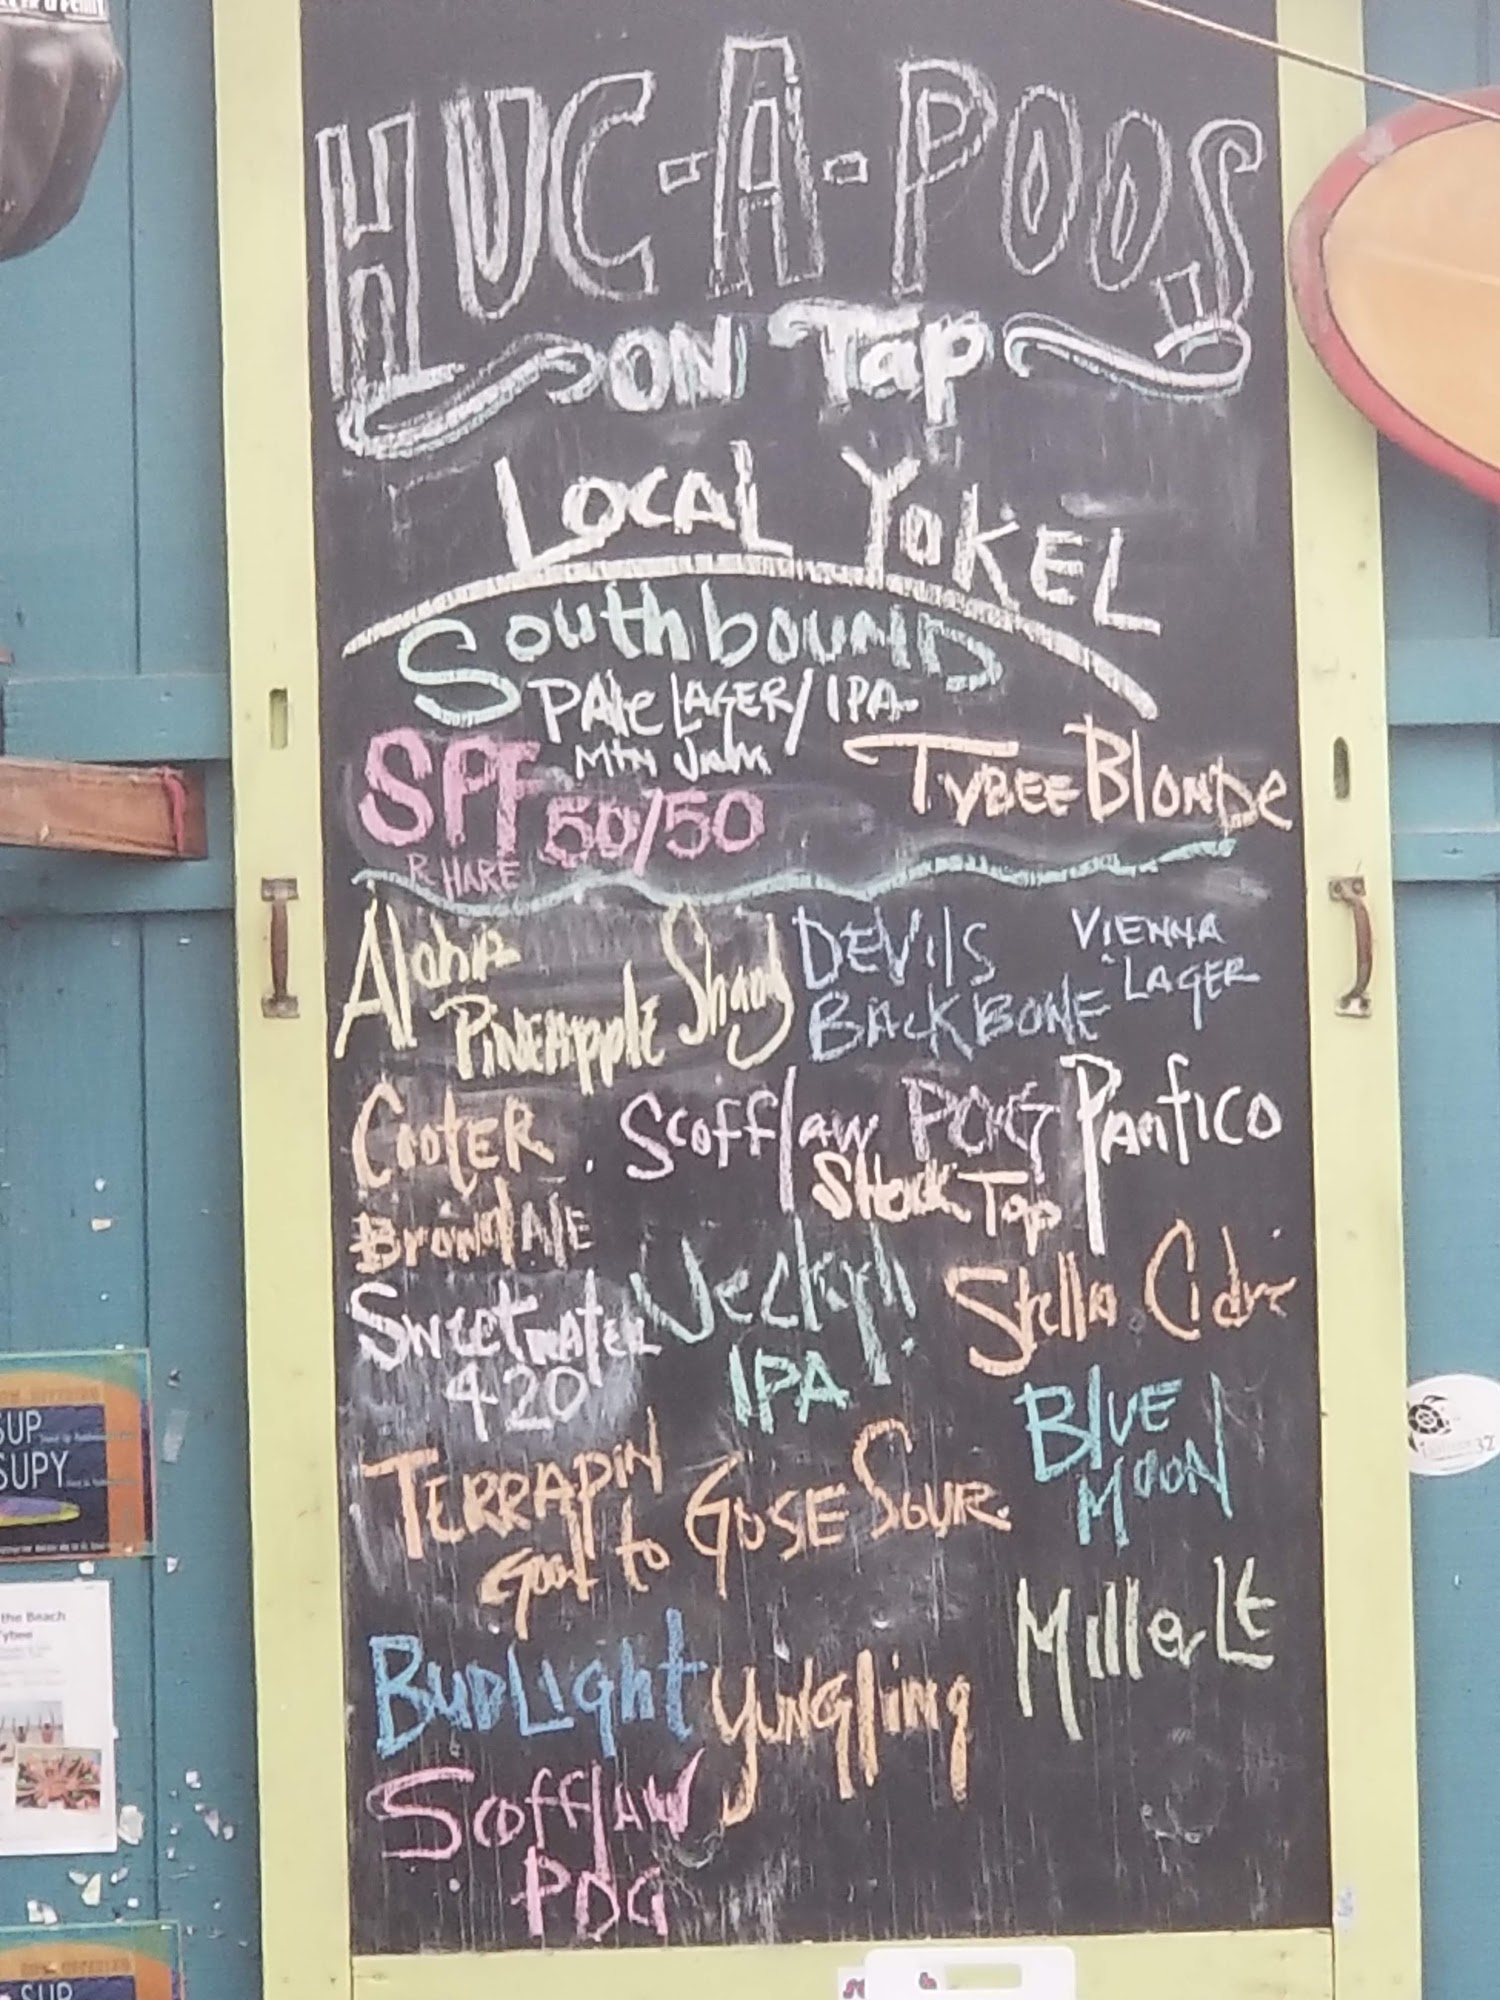 HUC-A-POOS
ON Tap
LOCAL YOKEL
Southbound
PALE LAGER/IPA
Mtn Jam
SPF
50/50
R HARE
TYBEE BLONDE
Aloha
PINEApple Shandy
DEVilS
BACKBONE
VIENNA
LAGER
CooTER
Brown ALE
Scofflaw POG
Pacifico
Shock Top
Sweetwater
420
IPA
Stella Cidre
BLUE
MOON
TERRAPIN
Goat to GOSE SOUR
BUDLight
Yungling
Miller Lt
ScofflAW
POG
SUP
SUPY
the Beach
Tybee
SUP